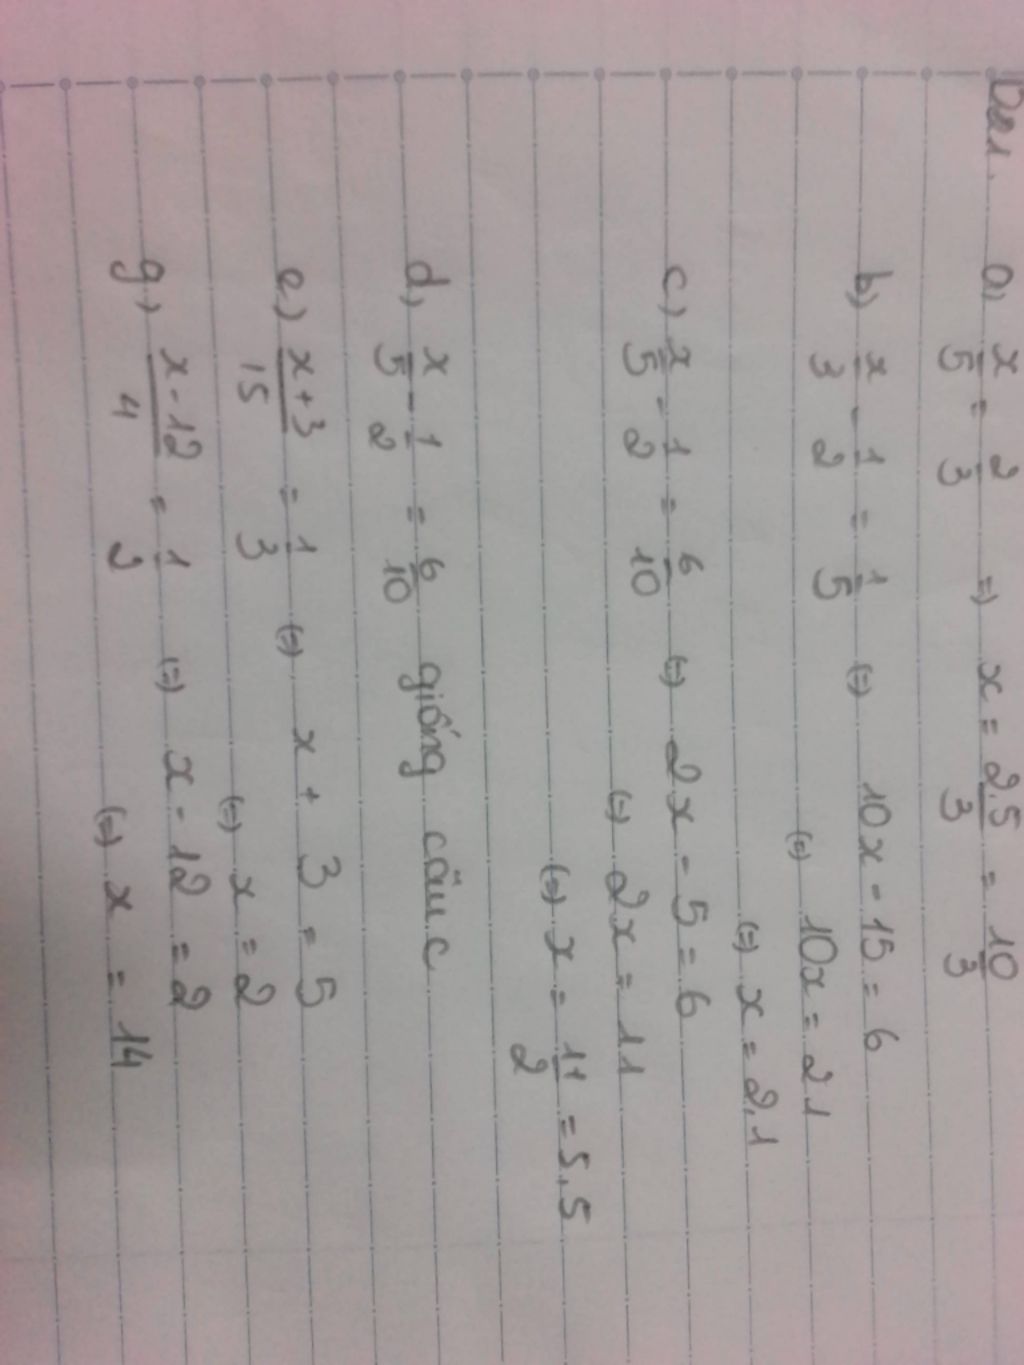 Bài 1. a) x/5 = 2/3 => x = 2.5/3 = 10/3
b) x/3 - 1/2 = 1/5 (=) 10x - 15 = 6
(=) 10x = 21
(=) x = 2,1
c) x/5 - 1/2 = 6/10 (=) 2x - 5 = 6
(=) 2x = 11
(=) x = 11/2 = 5,5
d) x/5 - 1/2 = 6/10 giống câu c
e) x+3/15 = 1/3 (=) x + 3 = 5
(=) x = 2
g) x-12/4 = 1/2 (=) x - 12 = 2
(=) x = 14